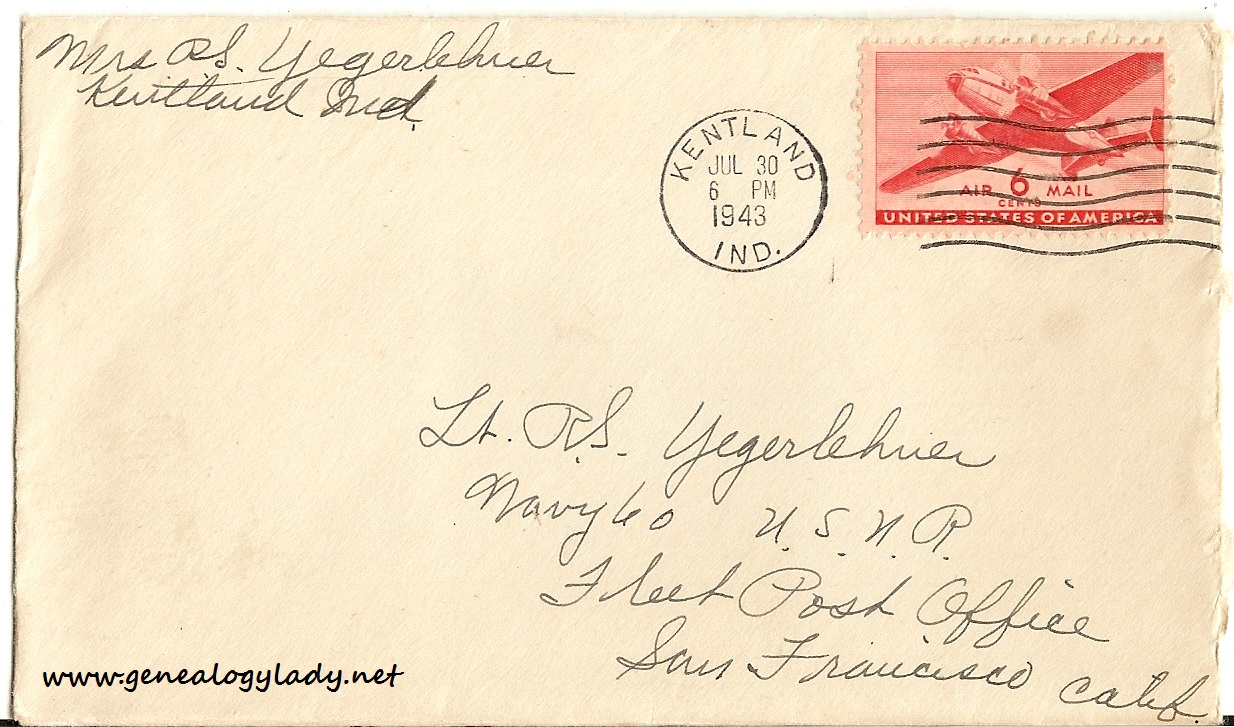 Mrs R.S. Yegerlehner
Kentland Ind.
KENTLAND
JUL 30
6 PM
1943
IND.
AIR 6 MAIL
CENTS
UNITED STATES OF AMERICA
Lt. R.S. Yegerlehner
Navy 60 U.S.N.R.
Fleet Post Office
San Francisco Calif.
www.genealogylady.net